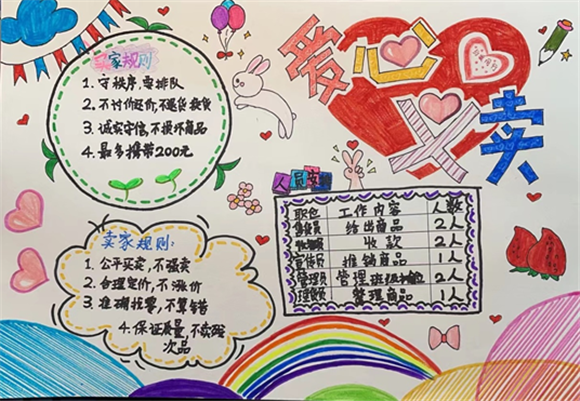 爱心义卖
买家规则
1. 守秩序,要排队
2. 不讨价还价,不退货换货
3. 诚实守信,不损坏商品
4. 最多携带200元
人员安排
职位 工作内容 人数
售货员 给出商品 2人
收银员 收款 2人
宣传员 推销商品 1人
管理员 管理班级 2人
理货员 整理商品 1人
卖家规则:
1. 公平买卖,不强卖
2. 合理定价,不涨价
3. 准确找零,不算错
4. 保证质量,不卖残
次品